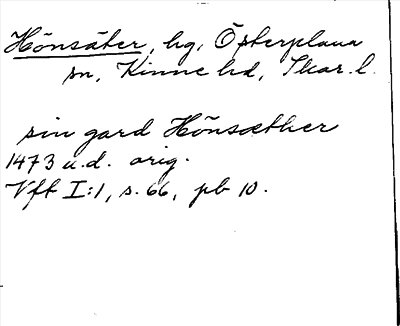 Hönsäter, hg, Österplana
sn, Kinne hd, Skar. l.
sin gard Hönsæther
1473 u.d. orig.
Vft I:1, s. 66, pb 10.